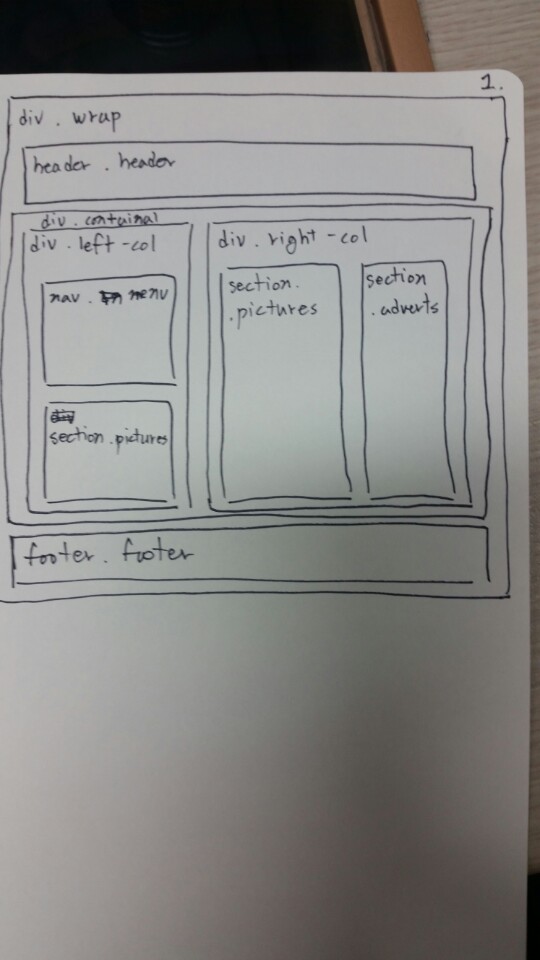 1.
div . wrap
header . header
div . containal
div . left -col
nav . menu
section . pictures
div . right -col
section .
. pictures
section
. adverts
footer . footer